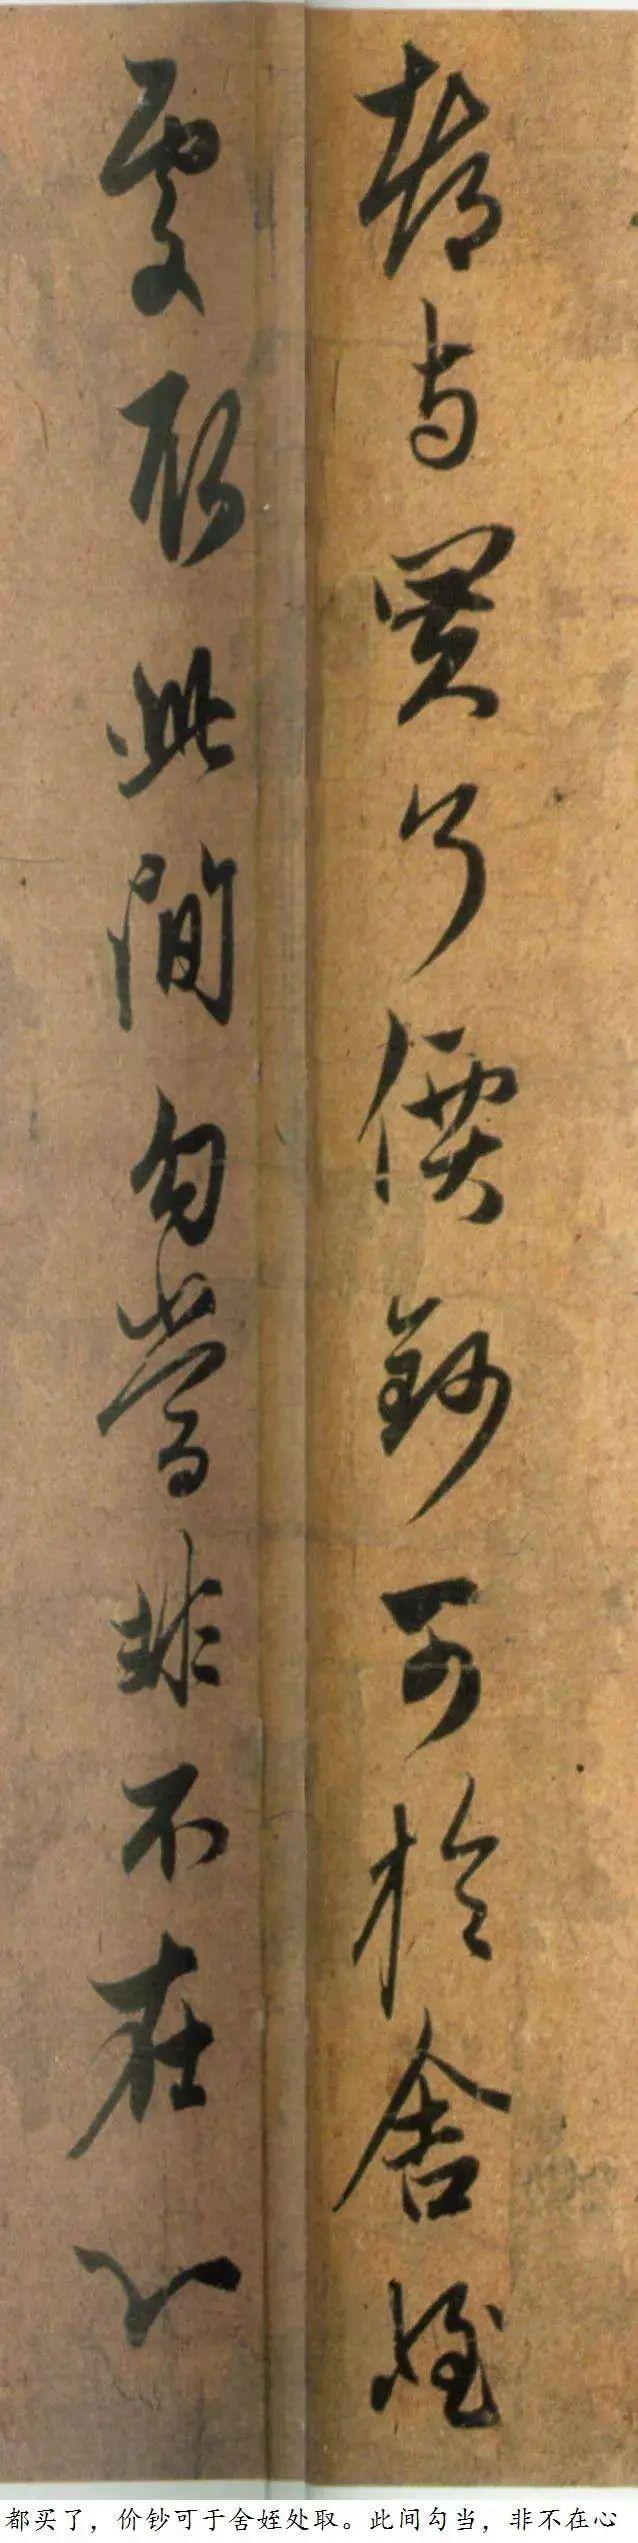 都与買了價鈔可於舍姪
處取此間勾當非不在心
都买了，价钞可于舍姪处取。此间勾当，非不在心